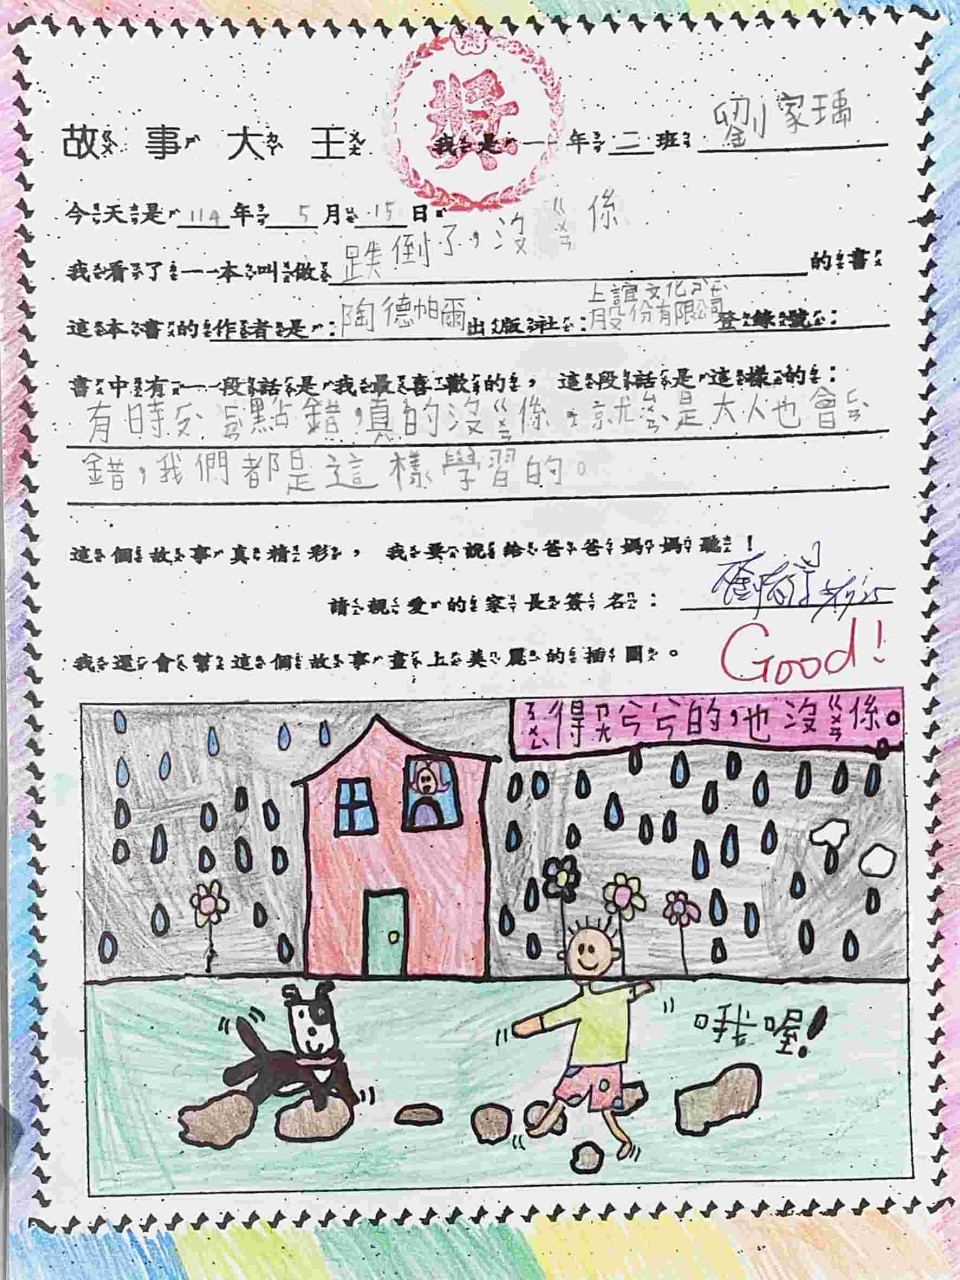 獎
故事大王 我是一年二班 劉家瑀
今天是 114 年 5 月 15 日。
我看了一本叫做 跌倒了，沒ㄍㄨㄢ係 的書
這本書的作者是：陶德帕爾 出版社：上誼文化公司股份有限公司 登錄號：
書中有一段話是我最喜歡的，這段話是這樣的：
有時ㄈㄢˋㄉㄧㄢ點錯，真的沒ㄍㄨㄢ係。就ㄙㄨㄢˋ是大人也會ㄈㄢˋ
錯，我們都是這樣學習的。
這個故事真精彩，我要說給爸爸媽媽聽！
請親愛的家長簽名：
Good!
我還會幫這個故事畫上美麗的插圖。
得哭兮兮的，也沒ㄍㄨㄢ係。